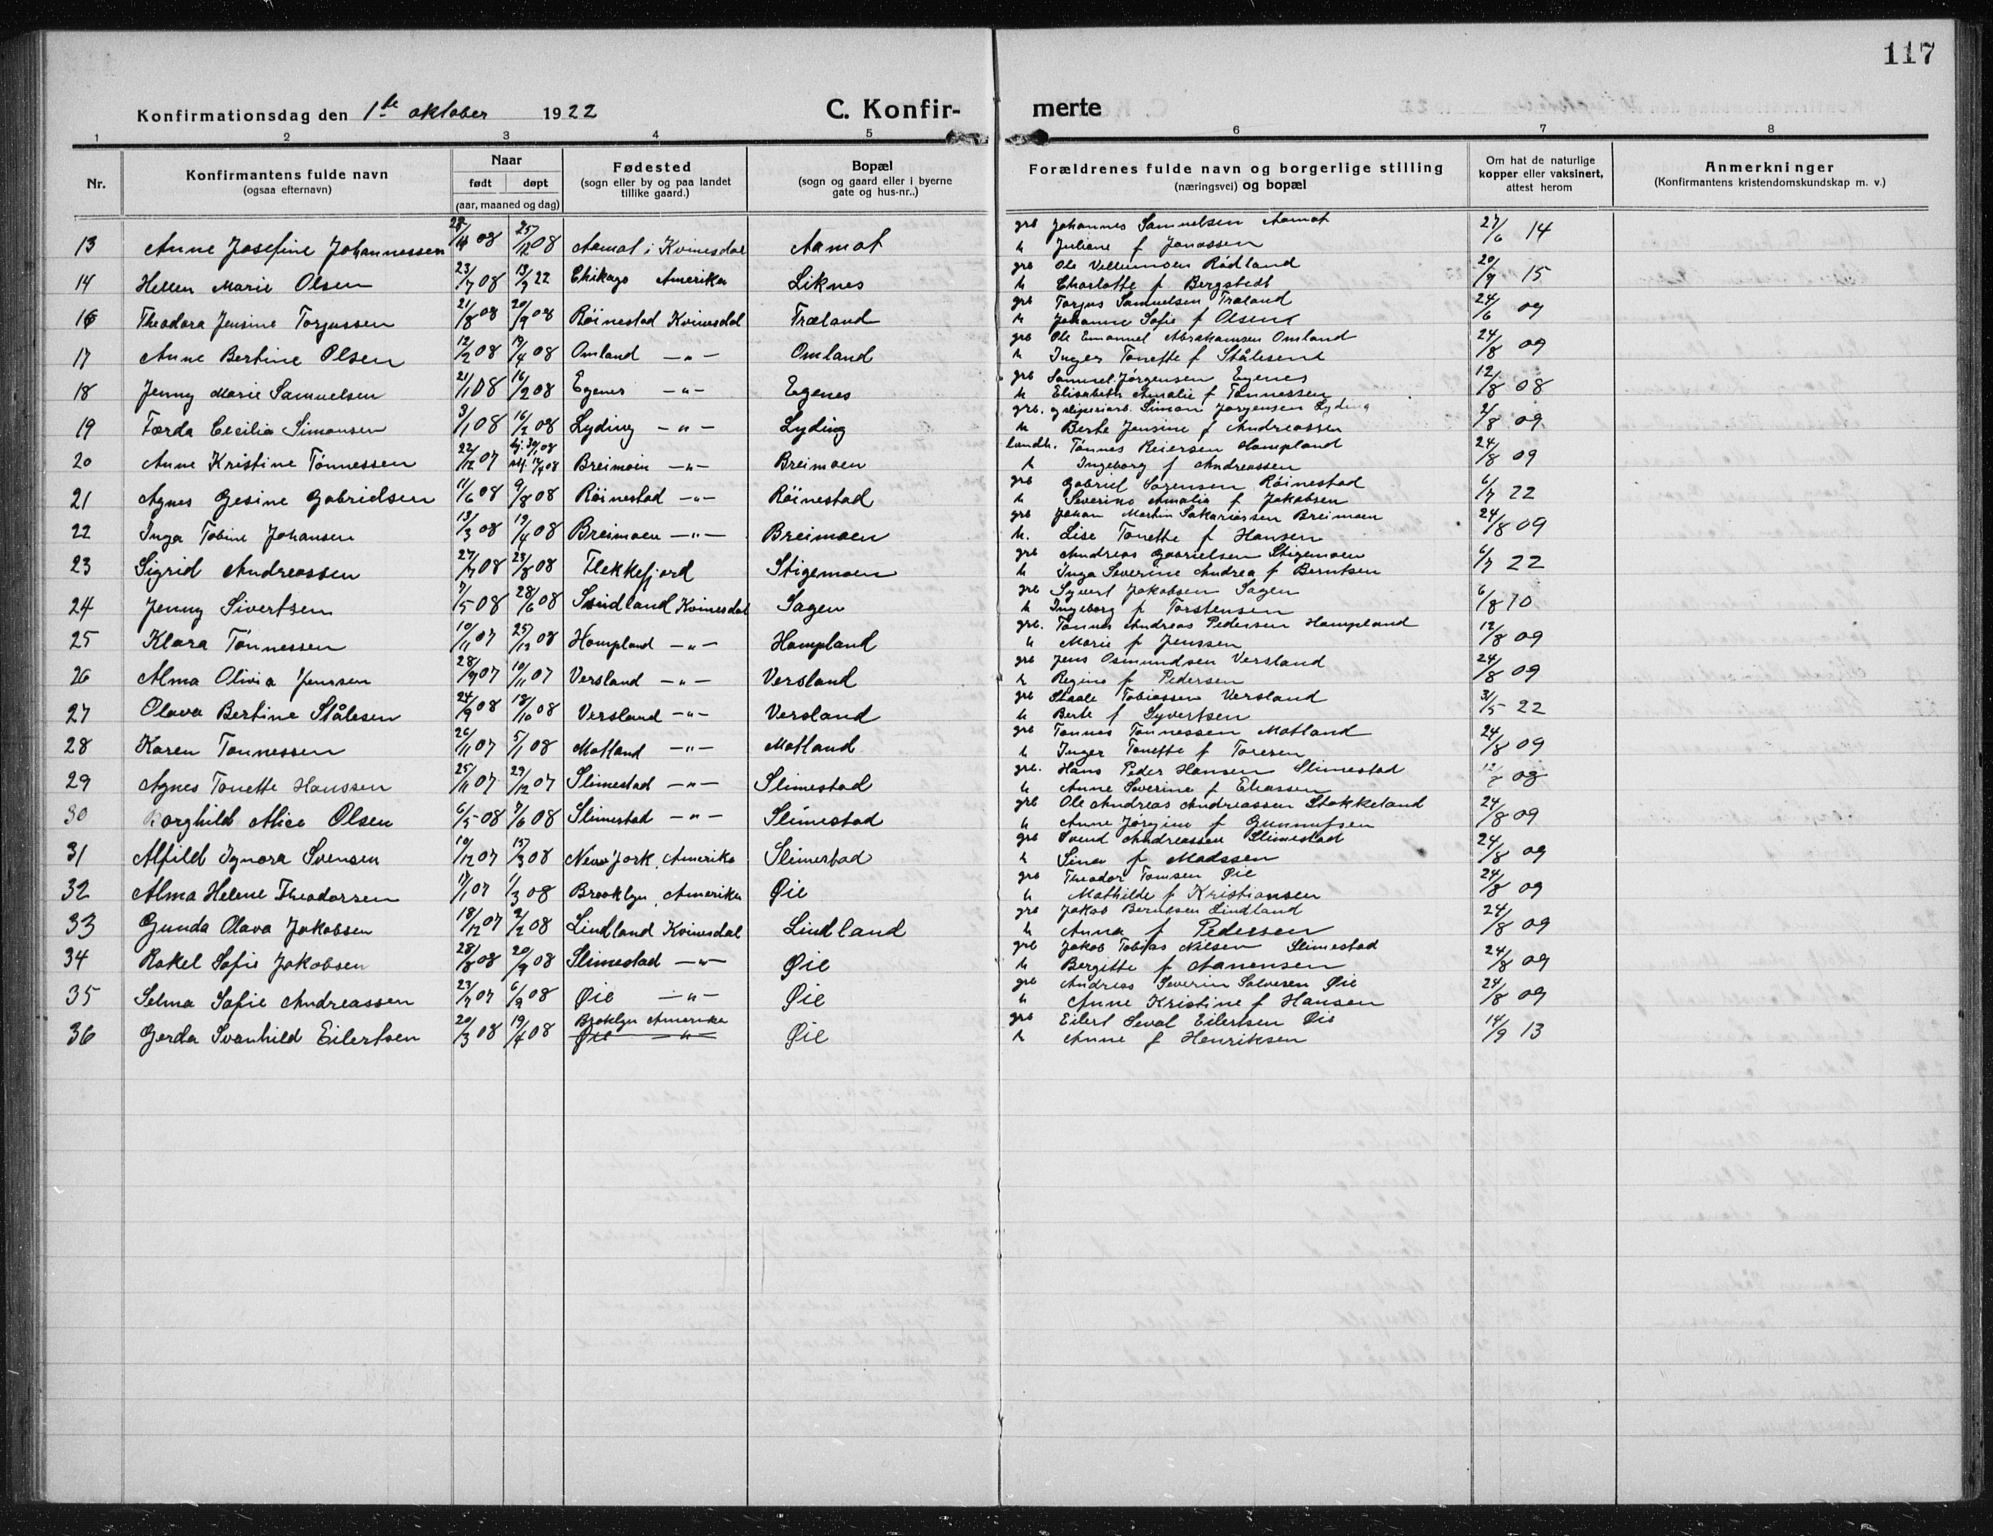 117
Konfirmationsdag den 1ste oktober 1922 C. Konfir- merte
1 2 3 4 5 6 7 8
Nr. Konfirmantens fulde navn (ogsaa efternavn) Naar født døpt (aar, maaned og dag) Fødested (sogn eller by og paa landet tillike gaard.) Bopæl (sogn og gaard eller i byerne gate og hus-nr..) Forældrenes fulde navn og borgerlige stilling (næringsvei) og bopæl Om hat de naturlige kopper eller vaksinert, attest herom Anmerkninger (Konfirmantens kristendomskundskap m. v.)
13 Anne Josefine Johannessen 28/11 08 25/12 08 Aamot i Kvinesdal Aamot grb Johannes Samuelsen Aamot 27/6 14
h Juliane f Jonassen
14 Hellen Marie Olsen 23/7 08 13/9 22 Chikago Amerika Liknes grb Ole Vellumsen Rødland 20/9 15
h Charlotte f Bergstedt
16 Theodora Jensine Torjussen 21/8 08 20/9 08 Røinestad Kvinesdal Træland grb Torjus Samuelsen Træland 24/6 09
h Johanne Sofie f Olsen
17 Anne Bertine Olsen 12/2 08 19/4 08 Omland -"- Omland grb Ole Emanuel Abrahamsen Omland 24/8 09
h Inger Tonette f Stålesen
18 Jenny Marie Samuelsen 21/1 08 16/2 08 Egenes -"- Egenes grb Samuel Jørgensen Egenes 12/8 08
h Elisabeth Amalie f Tønnessen
19 Torda Cecilia Simonsen 3/1 08 16/2 08 Lyding -"- Lyding grb. og sliperiarb. Simon Jørgensen Lyding 2/8 09
h Berte Jensine f Andreassen
20 Anne Kristine Tønnessen 22/12 07 hj. 30/1 08 Breimoen -"- Breimoen landh. Tønnes Reiersen Hompland 24/8 09
h Ingeborg f Andreassen
21 Agnes Gesine Gabrielsen 11/6 08 9/8 08 Røinestad -"- Røinestad grb Gabriel Sørensen Røinestad 6/7 22
h Severine Amalie f Jakobsen
22 Inga Tobine Johansen 13/3 08 19/4 08 Breimoen -"- Breimoen grb Johan Martin Sakariassen Breimoen 24/8 09
h. Lise Tonette f Hansen
23 Sigrid Andreassen 27/7 08 23/8 08 Flekkefjord Stigemoen grb Andreas Gabrielsen Stigemoen 6/7 22
h Inga Severine Andrea f Berntsen
24 Jenny Sivertsen 7/5 08 28/6 08 Sindland Kvinesdal Sagen grb Syvert Jakobsen Sagen 6/8 10
h Ingeborg f Torstensen
25 Klara Tønnessen 10/11 07 25/12 08 Hompland -"- Hompland grb. Tønnes Andreas Pedersen Hompland 12/8 09
h Marie f Jenssen
26 Alma Olivia Jenssen 28/9 07 10/11 07 Versland -"- Versland grb Jens Osmundsen Versland 24/8 09
h Regine f Pedersen
27 Olava Bertine Stålesen 24/9 08 18/10 08 Versland -"- Versland grb Staale Tobiassen Versland 31/5 22
h Berte f Syvertsen
28 Karen Tønnessen 26/11 07 5/1 08 Motland -"- Motland grb Tønnes Tønnessen Motland 24/8 09
h Inger Tonette f Toresen
29 Agnes Tonette Hanssen 25/11 07 29/12 07 Slimestad -"- Slimestad grb. Hans Peder Hansen Slimestad 08
h Anne Severine f Eliassen
30 Borghild Alice Olsen 6/5 08 7/6 08 Slimestad -"- Slimestad grb Ole Andreas Andreassen Stokkeland 24/8 09
h Anne Jørgine f Gunnufsen
31 Alfild Ignora Svensen 10/12 07 13/3 08 New York, Amerika Slimestad grb Svend Andreassen Slimestad 24/8 09
h Sina f Madssen
32 Alma Helene Theodorsen 17/1 07 1/3 08 Brooklyn, Amerika Øie grb Theodor Tomsen Øie 24/8 09
h Mathilde f Kristiansen
33 Gunda Olava Jakobsen 18/12 07 2/2 08 Lindland Kvinesdal Lindland grb Jakob Berntsen Lindland 24/8 09
h Anna f Pedersen
34 Rakel Sofie Jakobsen 28/8 08 20/9 08 Slimestad -"- Øie grb Jakob Tobias Nilsen Slimestad 24/8 09
h Bergitte f Aanensen
35 Selma Sofie Andreassen 23/7 07 6/9 08 Øie -"- Øie grb Andreas Severin Salvesen Øie 24/8 09
h Anne Kristine f Hansen
36 Gerda Svanhild Eilertsen 20/3 08 19/4 08 Broklyn Amerika Øie grb Eilert Seval Eilertsen Øie 14/9 13
Øie -"- h Anne f Henriksen